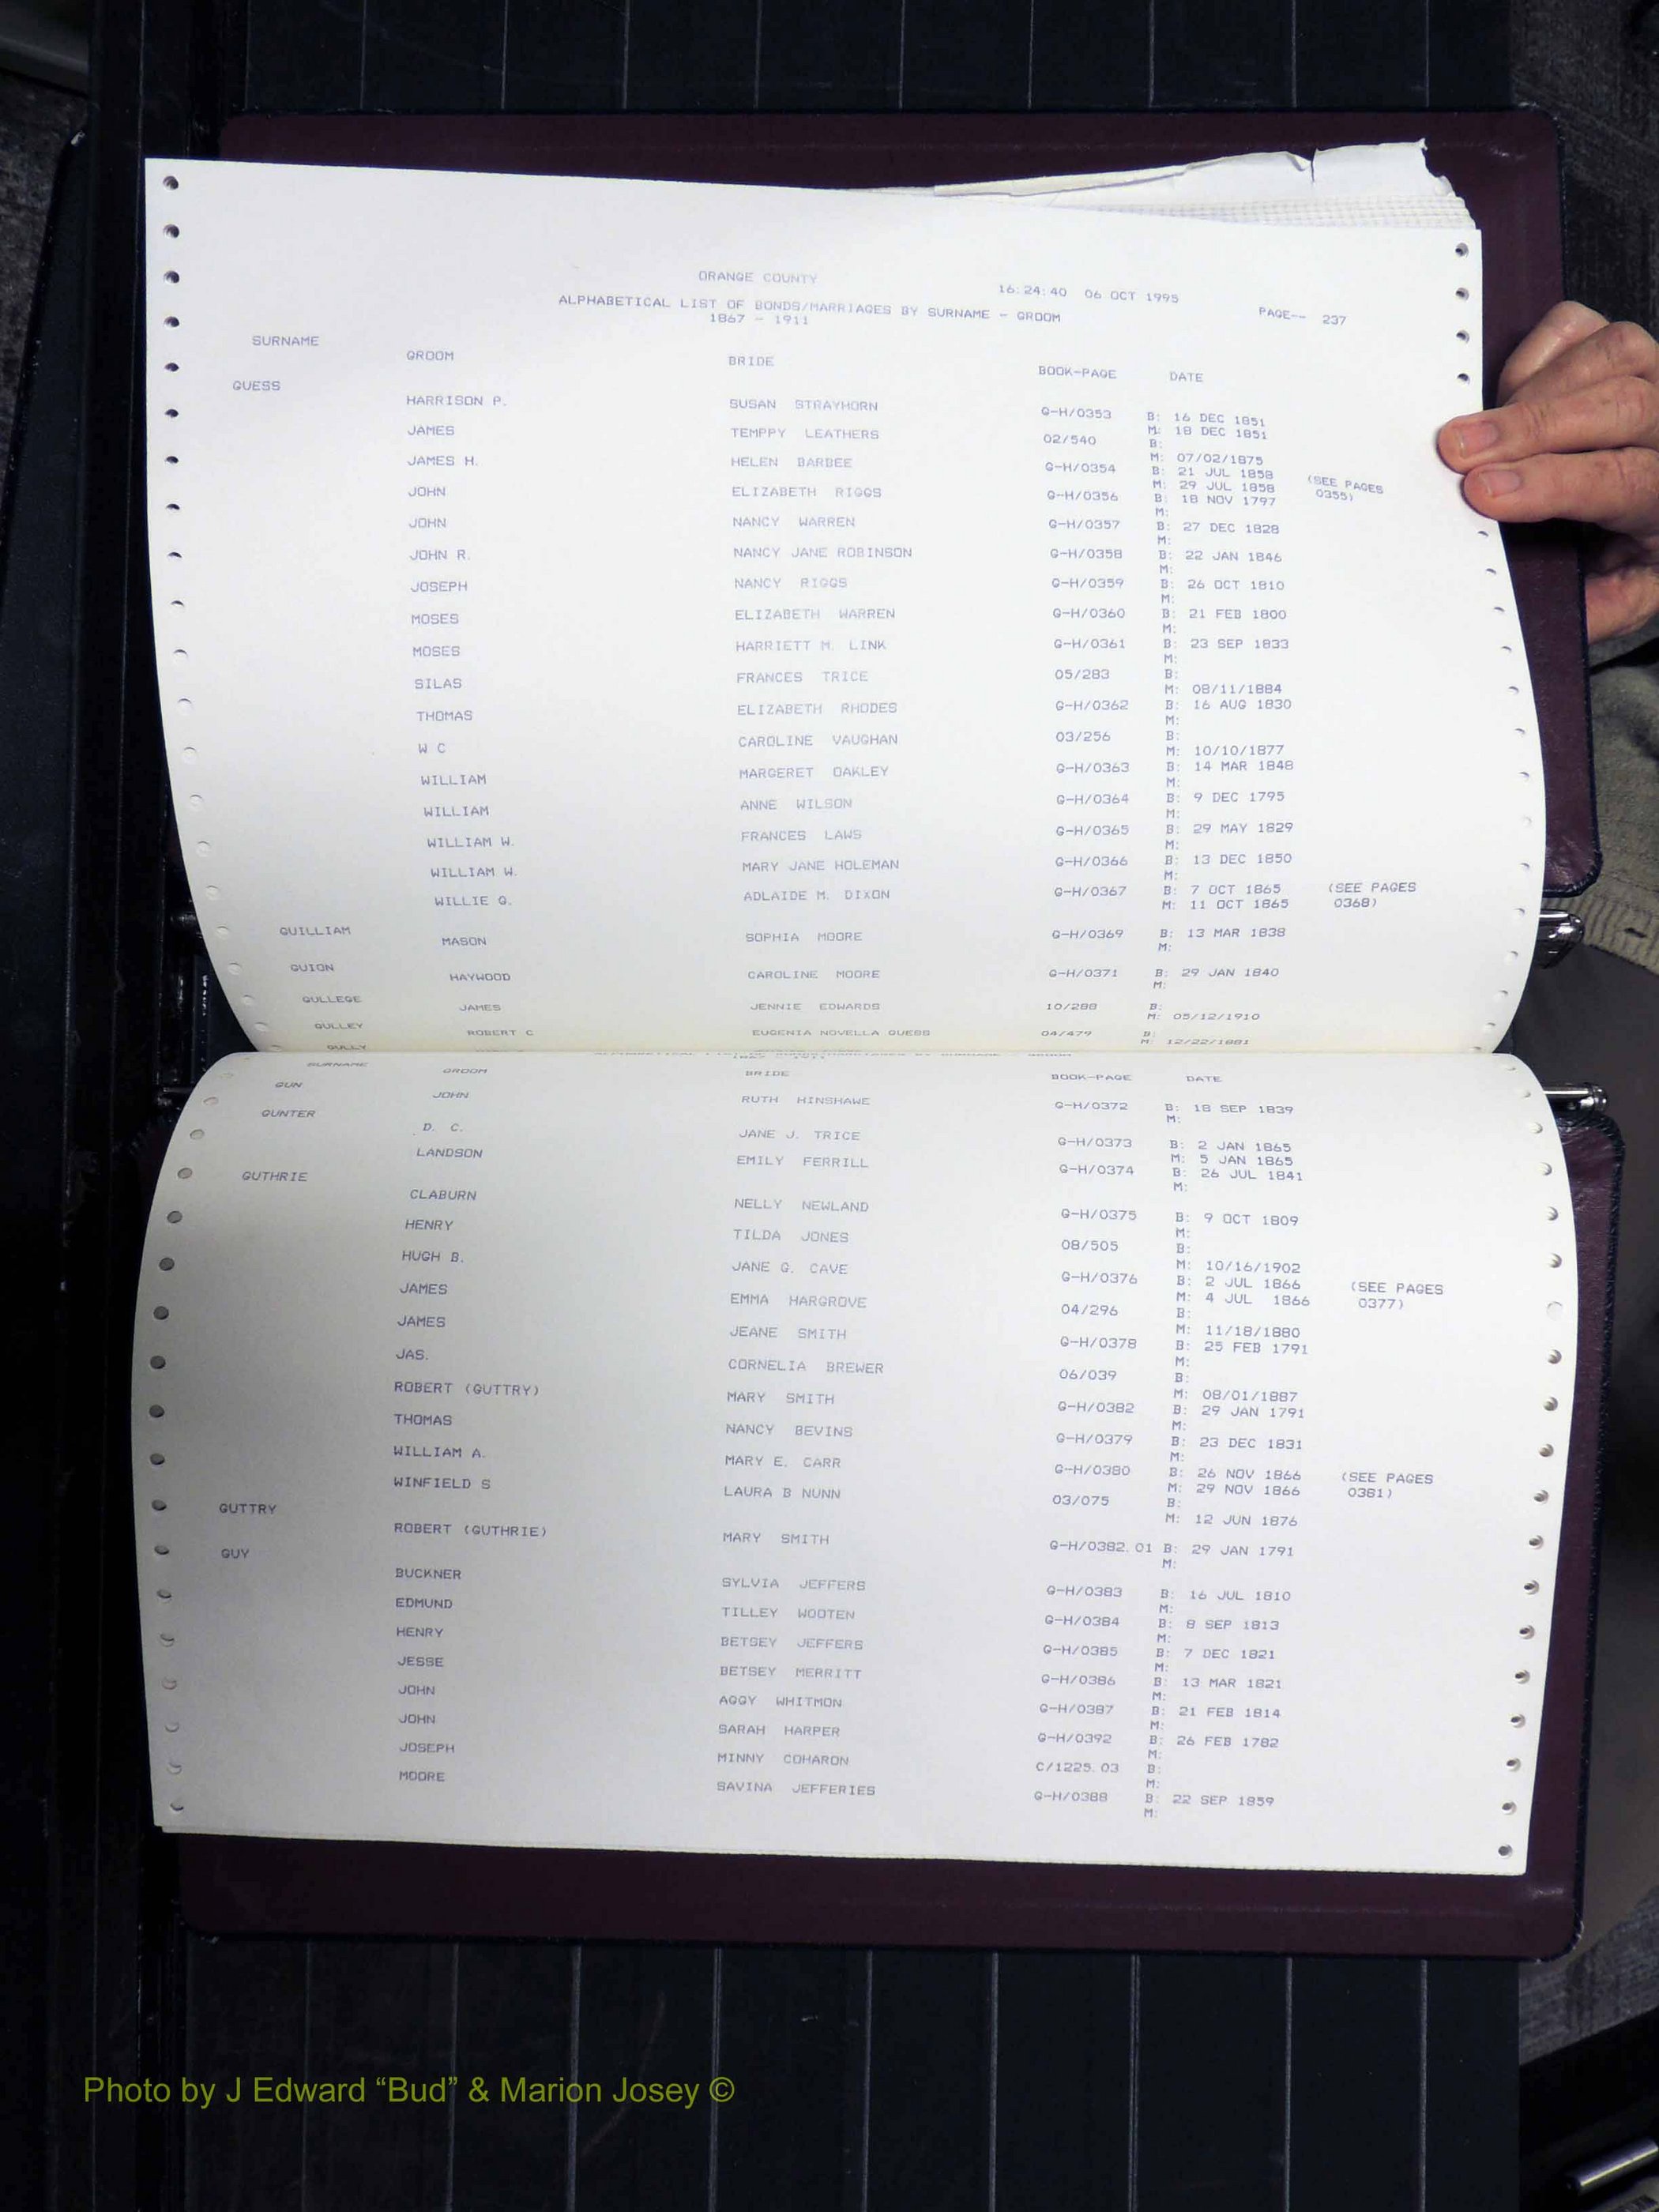 ORANGE COUNTY 16:24:40 06 OCT 1995
ALPHABETICAL LIST OF BONDS/MARRIAGES BY SURNAME - GROOM PAGE-- 237
1867 - 1911
SURNAME GROOM BRIDE BOOK-PAGE DATE
GUESS
HARRISON P. SUSAN STRAYHORN G-H/0353 B: 16 DEC 1851
M: 18 DEC 1851
JAMES TEMPPY LEATHERS 02/540 B:
M: 07/02/1875
JAMES H. HELEN BARBEE G-H/0354 B: 21 JUL 1858 (SEE PAGES
M: 29 JUL 1858 0355)
JOHN ELIZABETH RIGGS G-H/0356 B: 18 NOV 1797
M:
JOHN NANCY WARREN G-H/0357 B: 27 DEC 1828
M:
JOHN R. NANCY JANE ROBINSON G-H/0358 B: 22 JAN 1846
M:
JOSEPH NANCY RIGGS G-H/0359 B: 26 OCT 1810
M:
MOSES ELIZABETH WARREN G-H/0360 B: 21 FEB 1800
M:
MOSES HARRIETT M. LINK G-H/0361 B: 23 SEP 1833
M:
SILAS FRANCES TRICE 05/283 B:
M: 08/11/1884
THOMAS ELIZABETH RHODES G-H/0362 B: 16 AUG 1830
M:
W C CAROLINE VAUGHAN 03/256 B:
M: 10/10/1877
WILLIAM MARGERET OAKLEY G-H/0363 B: 14 MAR 1848
M:
WILLIAM ANNE WILSON G-H/0364 B: 9 DEC 1795
M:
WILLIAM W. FRANCES LAWS G-H/0365 B: 29 MAY 1829
M:
WILLIAM W. MARY JANE HOLEMAN G-H/0366 B: 13 DEC 1850
M:
WILLIE G. ADLAIDE M. DIXON G-H/0367 B: 7 OCT 1865 (SEE PAGES
M: 11 OCT 1865 0368)
GUILLIAM
MASON SOPHIA MOORE G-H/0369 B: 13 MAR 1838
M:
GUION
HAYWOOD CAROLINE MOORE G-H/0371 B: 29 JAN 1840
M:
GULLEGE
JAMES JENNIE EDWARDS 10/288 B:
M: 05/12/1910
GULLEY
ROBERT C EUGENIA NOVELLA GUESS 04/479 B:
M: 12/22/1881
GULLY
ALPHABETICAL LIST OF BONDS/MARRIAGES BY SURNAME - GROOM
1867 - 1911
SURNAME GROOM BRIDE BOOK-PAGE DATE
GUN
JOHN RUTH HINSHAWE G-H/0372 B: 18 SEP 1839
M:
GUNTER
D. C. JANE J. TRICE G-H/0373 B: 2 JAN 1865
M: 5 JAN 1865
LANDSON EMILY FERRILL G-H/0374 B: 26 JUL 1841
M:
GUTHRIE
CLABURN NELLY NEWLAND G-H/0375 B: 9 OCT 1809
M:
HENRY TILDA JONES 08/505 B:
M: 10/16/1902
HUGH B. JANE G. CAVE G-H/0376 B: 2 JUL 1866 (SEE PAGES
M: 4 JUL 1866 0377)
JAMES EMMA HARGROVE 04/296 B:
M: 11/18/1880
JAMES JEANE SMITH G-H/0378 B: 25 FEB 1791
M:
JAS. CORNELIA BREWER 06/039 B:
M: 08/01/1887
ROBERT (GUTTRY) MARY SMITH G-H/0382 B: 29 JAN 1791
M:
THOMAS NANCY BEVINS G-H/0379 B: 23 DEC 1831
M:
WILLIAM A. MARY E. CARR G-H/0380 B: 26 NOV 1866 (SEE PAGES
M: 29 NOV 1866 0381)
WINFIELD S LAURA B NUNN 03/075 B:
M: 12 JUN 1876
GUTTRY
ROBERT (GUTHRIE) MARY SMITH G-H/0382.01 B: 29 JAN 1791
M:
GUY
BUCKNER SYLVIA JEFFERS G-H/0383 B: 16 JUL 1810
M:
EDMUND TILLEY WOOTEN G-H/0384 B: 8 SEP 1813
M:
HENRY BETSEY JEFFERS G-H/0385 B: 7 DEC 1821
M:
JESSE BETSEY MERRITT G-H/0386 B: 13 MAR 1821
M:
JOHN AGGY WHITMON G-H/0387 B: 21 FEB 1814
M:
JOHN SARAH HARPER G-H/0392 B: 26 FEB 1782
M:
JOSEPH MINNY COHARON C/1225.03 B:
M:
MOORE SAVINA JEFFERIES G-H/0388 B: 22 SEP 1859
M:
Photo by J Edward “Bud” & Marion Josey ©